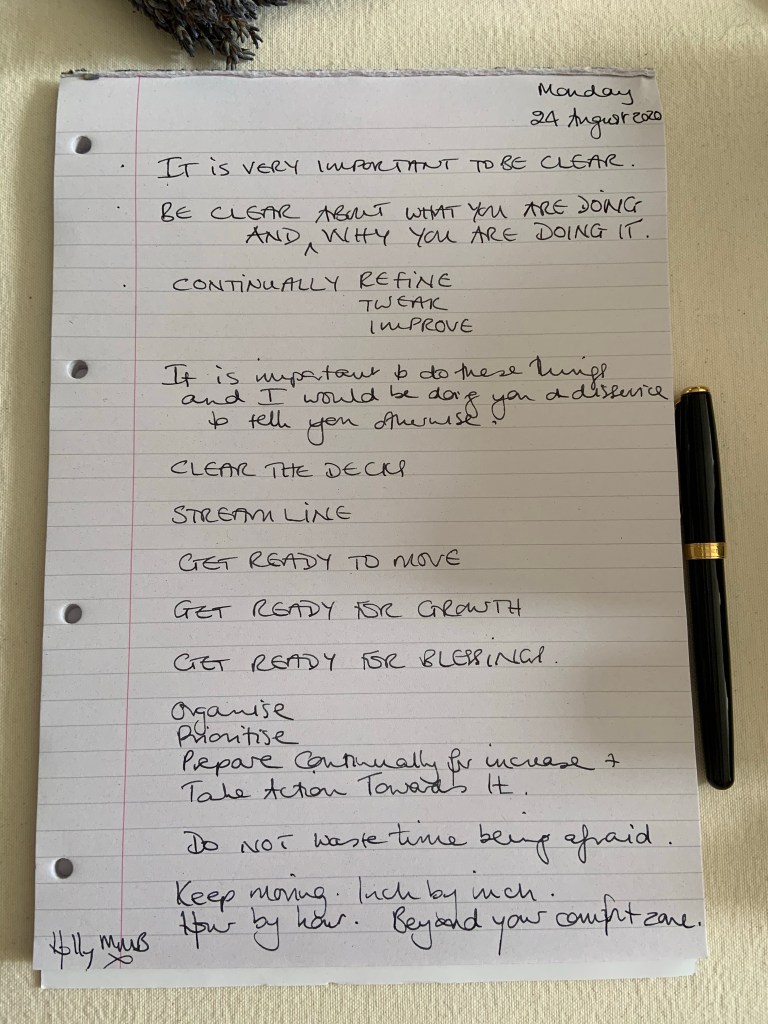 Monday
24 August 2020
· IT IS VERY IMPORTANT TO BE CLEAR.
· BE CLEAR ABOUT WHAT YOU ARE DOING
AND ^ WHY YOU ARE DOING IT.
· CONTINUALLY REFINE
TWEAK
IMPROVE
It is important to do these things
and I would be doing you a disservice
to tell you otherwise.
CLEAR THE DECKS
STREAMLINE
GET READY TO MOVE
GET READY FOR GROWTH
GET READY FOR BLESSINGS.
Organise
Prioritise
Prepare Continually for increase +
Take Action Towards It.
Do NOT waste time being afraid.
Keep moving. Inch by inch.
Hour by hour. Beyond your comfort zone.
Holly MMB
x